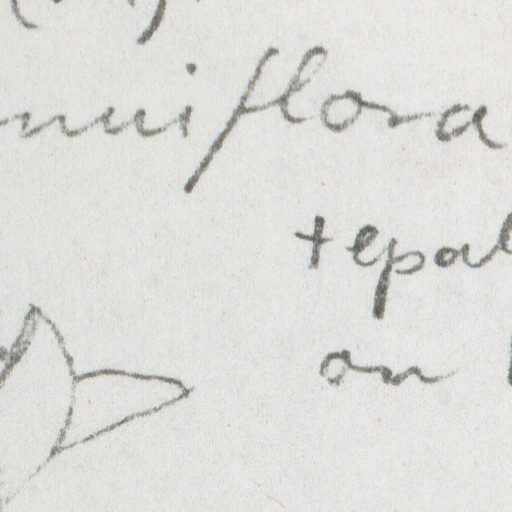 nuiflora
tepal
on